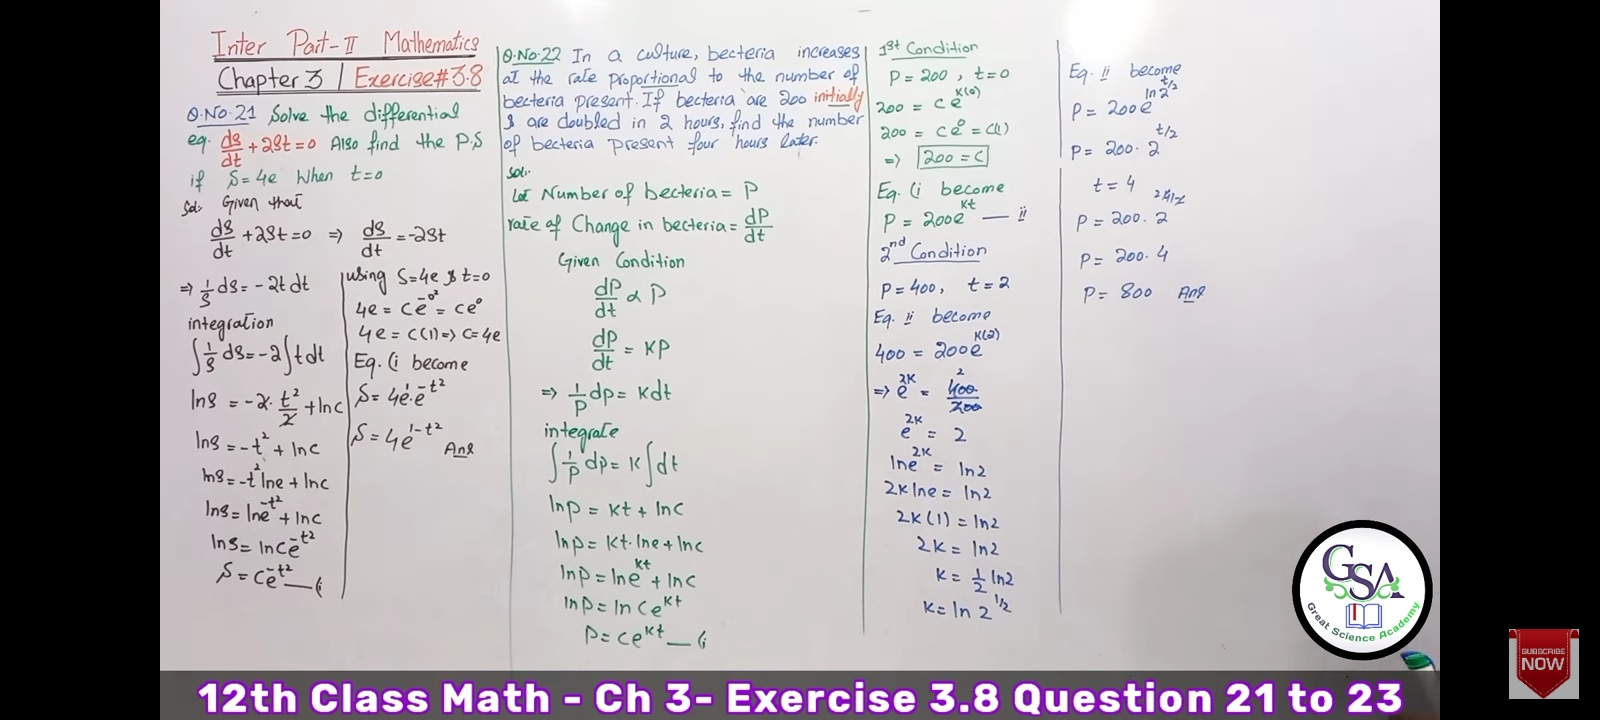 Inter Part-II Mathematics
Chapter 3 | Exercise#3.8
Q.No.21 Solve the differential
eq. ds/dt + 2St = 0 Also find the P.S
if S = 4e When t = 0
Sol: Given that
ds/dt + 2St = 0 ⇒ ds/dt = -2St
⇒ 1/S ds = -2t dt
integration
∫ 1/S ds = -2 ∫ t dt
lns = -2. t²/2 + lnc
lns = -t² + lnc
lns = -t² lne + lnc
lns = lne^-t² + lnc
lns = lnce^-t²
S = ce^-t² — (i
using S = 4e & t = 0
4e = ce^-0² = ce⁰
4e = c(1) ⇒ c = 4e
Eq. (i become
S = 4e¹.e^-t²
S = 4e^1-t² Ans
Q.No.22 In a culture, becteria increases
at the rate proportional to the number of
becteria present. If becteria are 200 initially
& are doubled in 2 hours, find the number
of becteria present four hours later.
Sol:
Let Number of becteria = P
rate of Change in becteria = dP/dt
Given Condition
dP/dt ∝ P
dP/dt = KP
⇒ 1/P dp = Kdt
integrate
∫ 1/P dp = K ∫ dt
lnp = Kt + lnc
lnp = Kt.lne + lnc
lnp = lne^Kt + lnc
lnp = lnce^Kt
P = ce^Kt — (i
1st Condition
P = 200, t = 0
200 = ce^K(0)
200 = ce⁰ = c(1)
⇒ 200 = c
Eq. (i become
P = 200e^Kt — ii
2nd Condition
P = 400, t = 2
Eq. ii become
400 = 200e^K(2)
⇒ e^2K = 400/200 2
e^2K = 2
lne^2K = ln2
2K lne = ln2
2K(1) = ln2
2K = ln2
K = 1/2 ln2
K = ln 2^1/2
Eq. ii become
P = 200e^ln2^t/2
P = 200. 2^t/2
t = 4
P = 200. 2^4/2
P = 200. 4
P = 800 Ans
GSA
Great Science Academy
SUBSCRIBE
NOW
12th Class Math - Ch 3- Exercise 3.8 Question 21 to 23